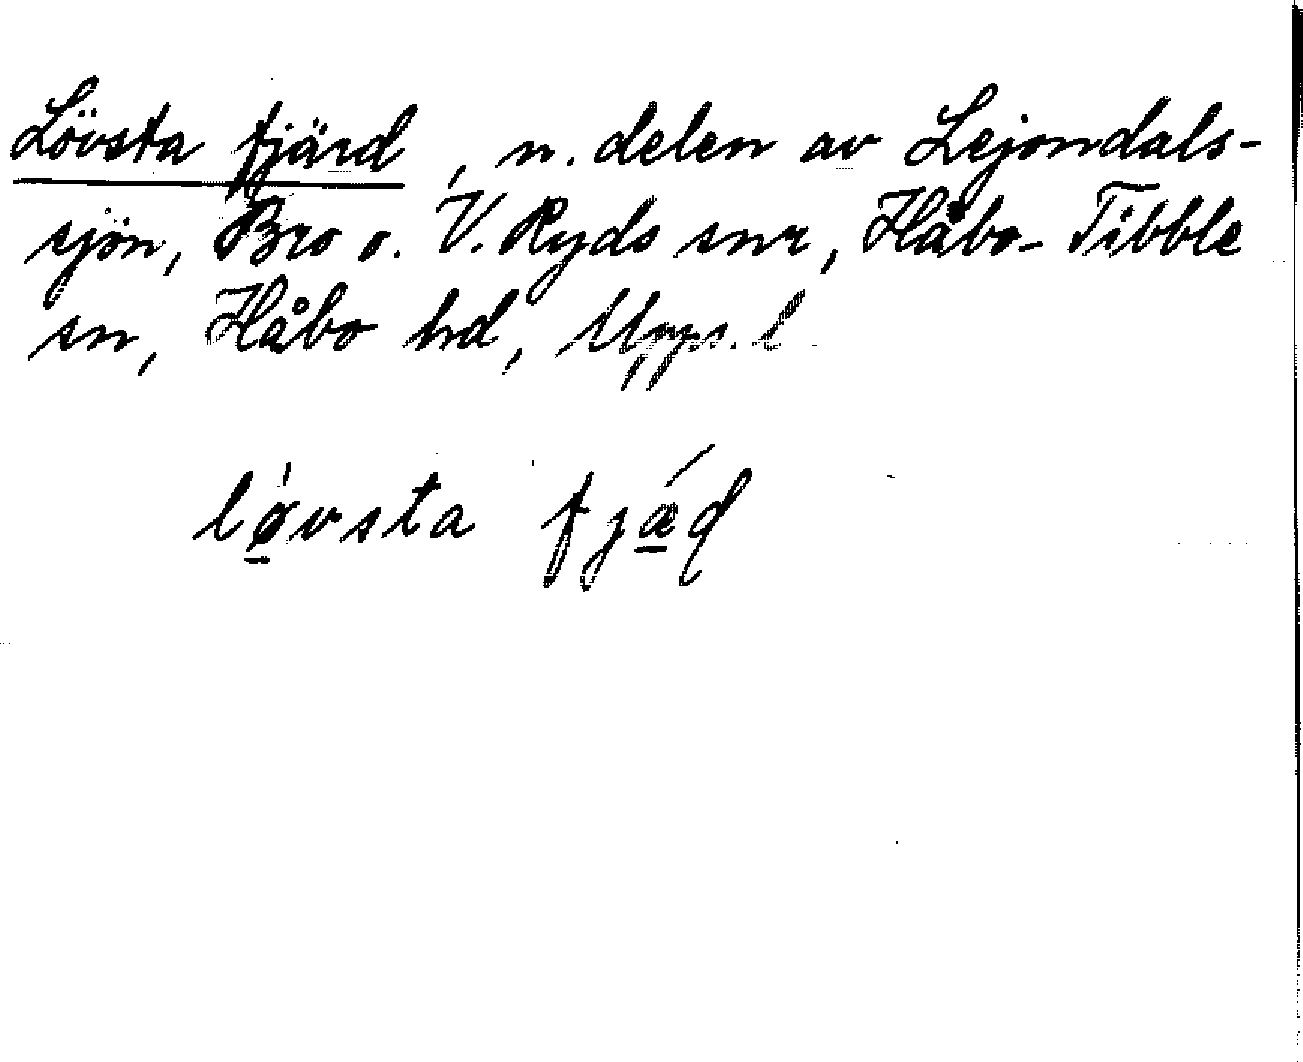 Lövsta fjärd, n. delen av Lejondals-
sjön, Bro o. V. Ryds snr, Håbo-Tibble
sn, Håbo hd, Upps. l.
lø̱̍vsta fjǽ̱ɖ